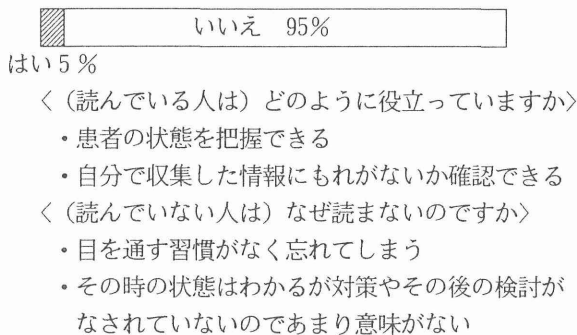 いいえ 95%
はい5%
〈（読んでいる人は）どのように役立っていますか〉
・患者の状態を把握できる
・自分で収集した情報にもれがないか確認できる
〈（読んでいない人は）なぜ読まないのですか〉
・目を通す習慣がなく忘れてしまう
・その時の状態はわかるが対策やその後の検討が
なされていないのであまり意味がない